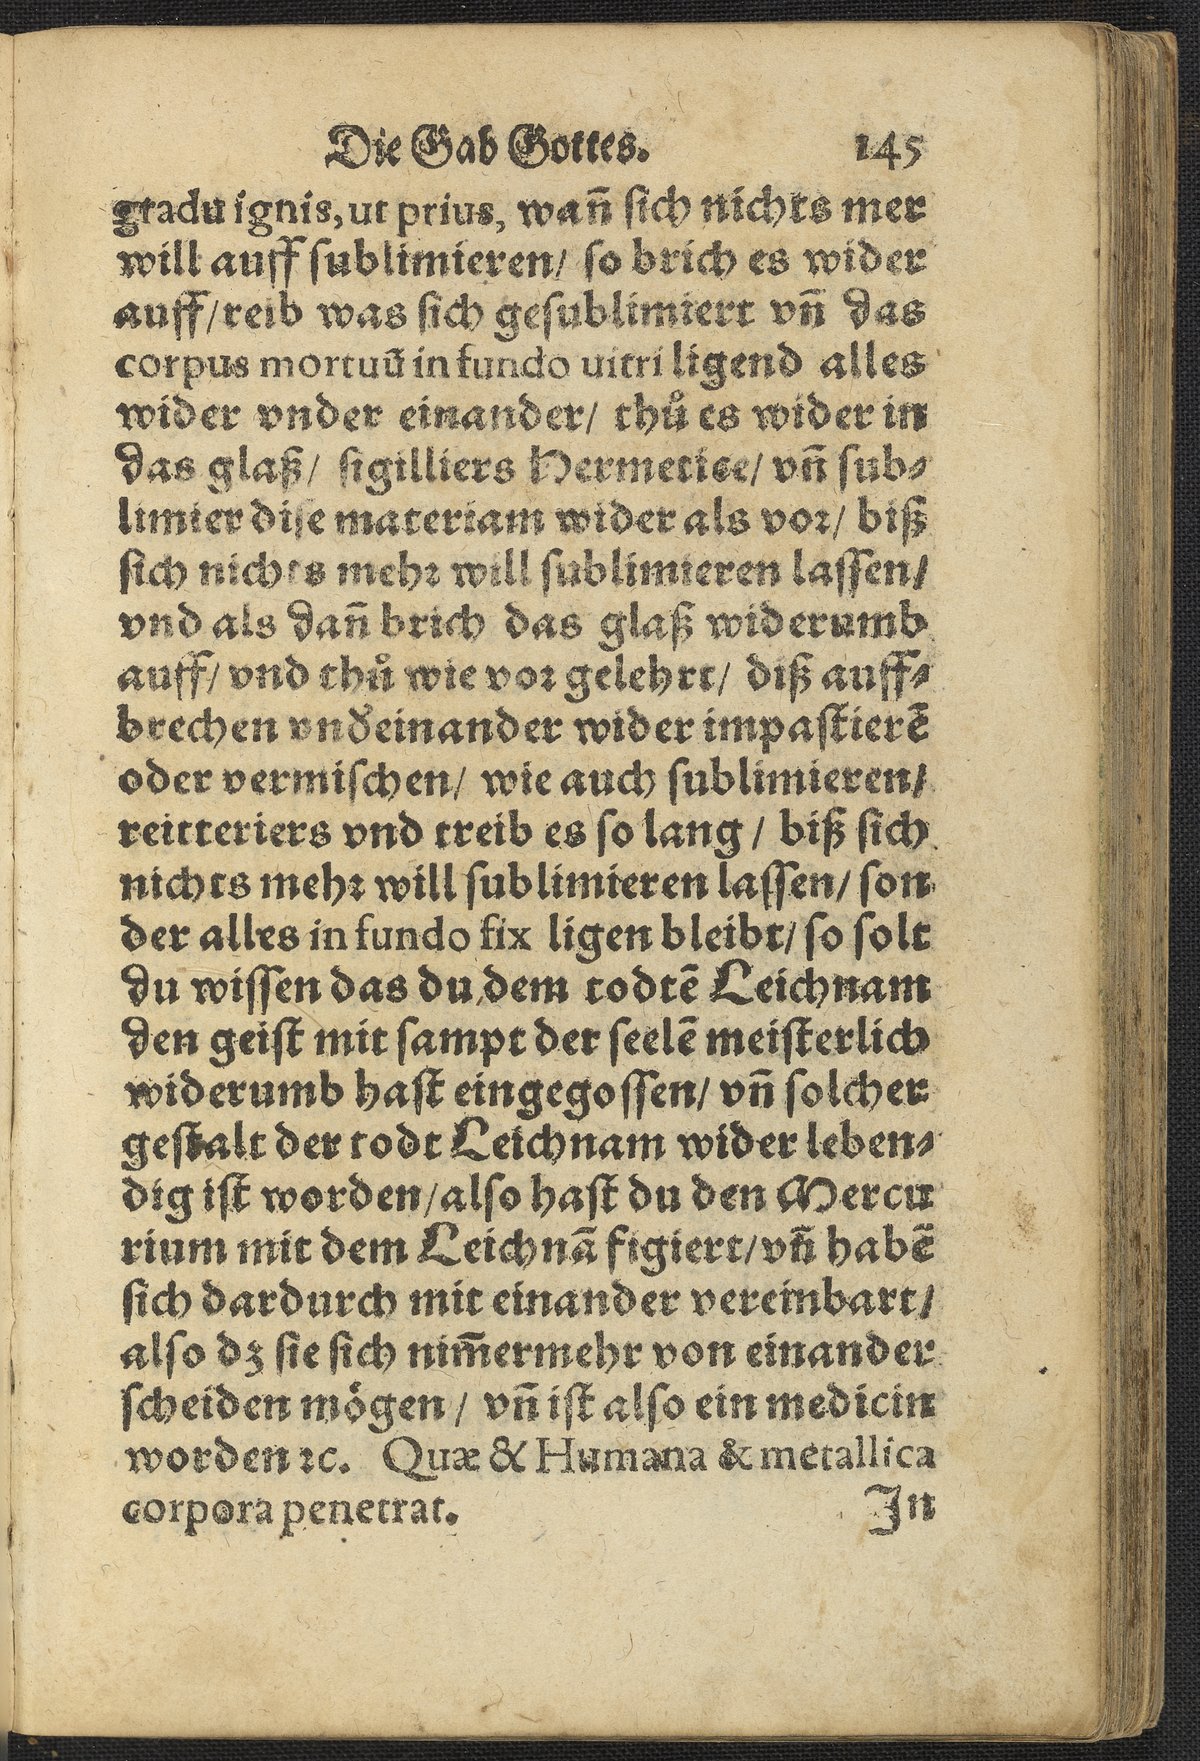 Die Gab Gottes. 145
gradu ignis, ut prius, wañ sich nichts mer
will auff sublimieren/ so brich es wider
auff/reib was sich gesublimiert vñ das
corpus mortuũ in fundo uitri ligend alles
wider vnder einander/ thů es wider in
das glaß/ sigilliers Hermetice/ vñ sub-
limier dise materiam wider als vor/ biß
sich nichts mehr will sublimieren lassen/
vnd als dañ brich das glaß widerumb
auff/ vnd thů wie vor gelehrt/ diß auff-
brechen vnd̕einander wider impastierẽ
oder vermischen/ wie auch sublimieren/
reitteriers vnd treib es so lang/ biß sich
nichts mehr will sublimieren lassen/ son
der alles in fundo fix ligen bleibt/ so solt
du wissen das du dem todtẽ Leichnam
den geist mit sampt der seelẽ meisterlich
widerumb hast eingegossen/ vñ solcher
gestalt der todt Leichnam wider leben-
dig ist worden/also hast du den Mercu
rium mit dem Leichnã figiert/vñ habẽ
sich dardurch mit einander vereinbart/
also dz sie sich nim̃ermehr von einander
scheiden mögen/ vñ ist also ein medicin
worden ꝛc. Quæ & Humana & metallica
corpora penetrat. In